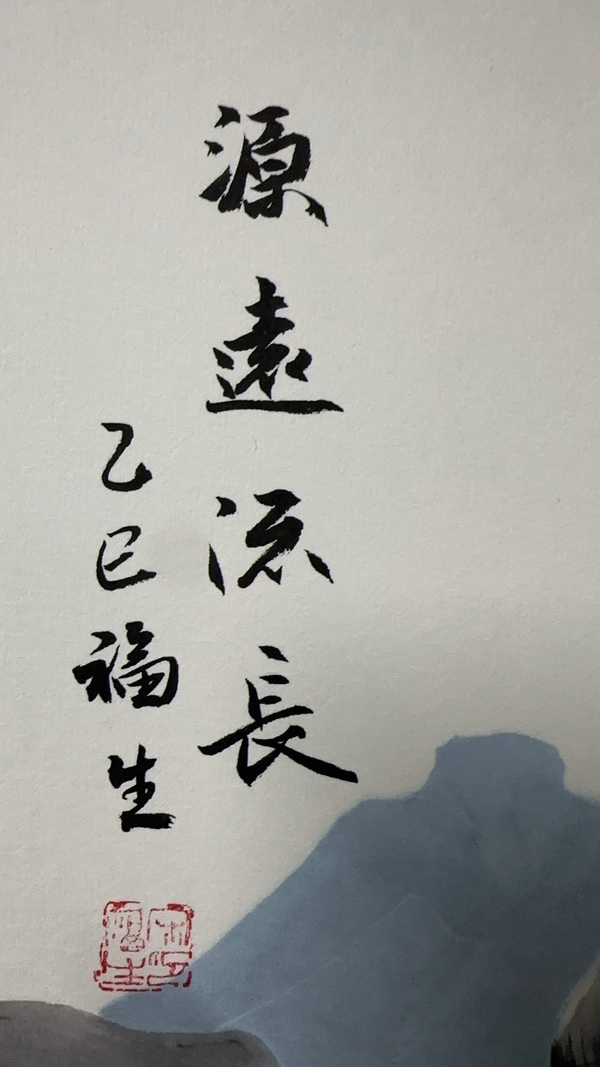 源遠流長
乙巳福生